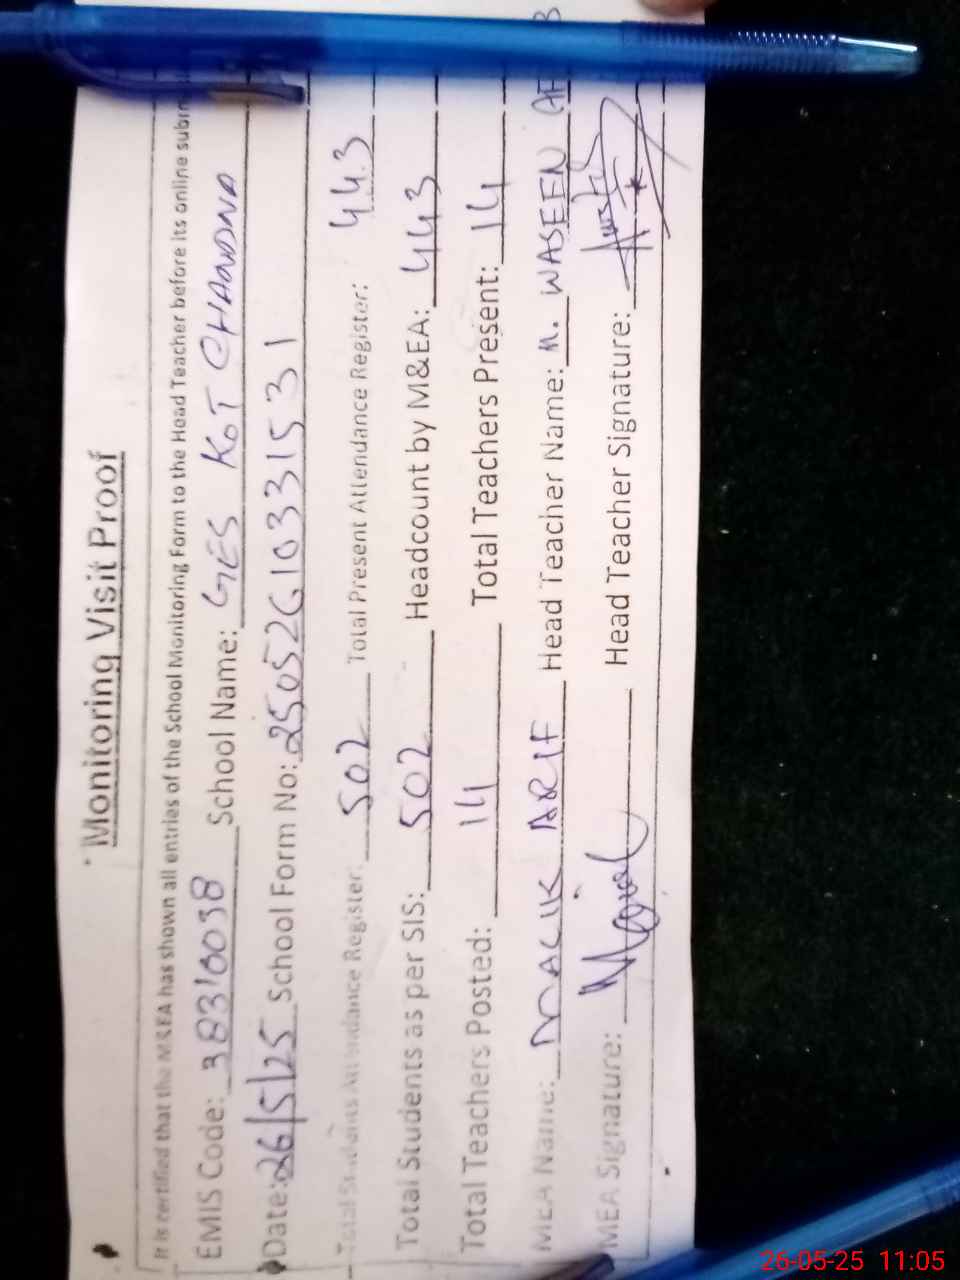 Monitoring Visit Proof
It is certified that the M&EA has shown all entries of the School Monitoring Form to the Head Teacher before its online
EMIS Code: 38310038 School Name: GES KOT CHANDNA
Date: 26/5/25 School Form No: 25052610331531
Total Students Attendance Register: 502 Total Present Attendance Register: 443
Total Students as per SIS: 502 Headcount by M&EA: 443
Total Teachers Posted: 14 Total Teachers Present: 14
MEA Name: MALIK ARIF Head Teacher Name: M. WASEEN
MEA Signature: Head Teacher Signature:
26-05-25 11:05